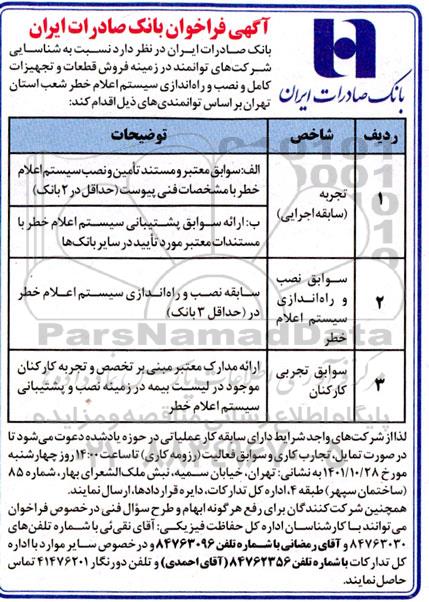 آگهی فراخوان بانک صادرات ایران
بانک صادرات ایران در نظر دارد نسبت به شناسایی
شرکت‌های توانمند در زمینه فروش قطعات و تجهیزات
کامل و نصب و راه‌اندازی سیستم اعلام خطر شعب استان
تهران بر اساس توانمندی‌های ذیل اقدام کند:
بانک صادرات ایران
ردیف شاخص توضیحات
۱
تجربه
(سابقه اجرایی)
الف: سوابق معتبر و مستند تأمین و نصب سیستم اعلام
خطر با مشخصات فنی پیوست (حداقل در ۲ بانک)
ب: ارائه سوابق پشتیبانی سیستم اعلام خطر با
مستندات معتبر مورد تأیید در سایر بانک‌ها
۲
سوابق نصب
و راه‌اندازی
سیستم اعلام
خطر
سابقه نصب و راه‌اندازی سیستم اعلام خطر
در (حداقل ۳ بانک)
۳
سوابق تجربی
کارکنان
ارائه مدارک معتبر مبنی بر تخصص و تجربه کارکنان
موجود در لیست بیمه در زمینه نصب و پشتیبانی
سیستم اعلام خطر
ParsNamadData
پایگاه اطلاع رسانی مناقصه و مزایده
لذا از شرکت‌های واجد شرایط دارای سابقه کار عملیاتی در حوزه یادشده دعوت می‌شود تا
در صورت تمایل، تجارب کاری و سوابق فعالیت (رزومه کاری) تا ساعت ۱۴:۰۰ روز چهارشنبه
مورخ ۱۴۰۱/۱۰/۲۸ به نشانی: تهران، خیابان سمیه، نبش ملک‌الشعرای بهار، شماره ۸۵
(ساختمان سپهر) طبقه ۴، اداره کل تدارکات، دایره قراردادها، ارسال نمایند.
همچنین شرکت‌کنندگان برای رفع هرگونه ابهام و طرح سؤال فنی در خصوص فراخوان
می‌توانند با کارشناسان اداره کل حفاظت فیزیکی: آقای نقی‌ئی با شماره تلفن‌های
۸۴۷۶۳۰۳۰ و آقای رمضانی با شماره تلفن ۸۴۷۶۳۰۹۶ و در خصوص سایر موارد با اداره
کل تدارکات با شماره تلفن ۸۴۷۶۲۳۵۶ (آقای احمدی) و تلفن دورنگار ۴۱۴۷۶۲۰۱ تماس
حاصل نمایند.